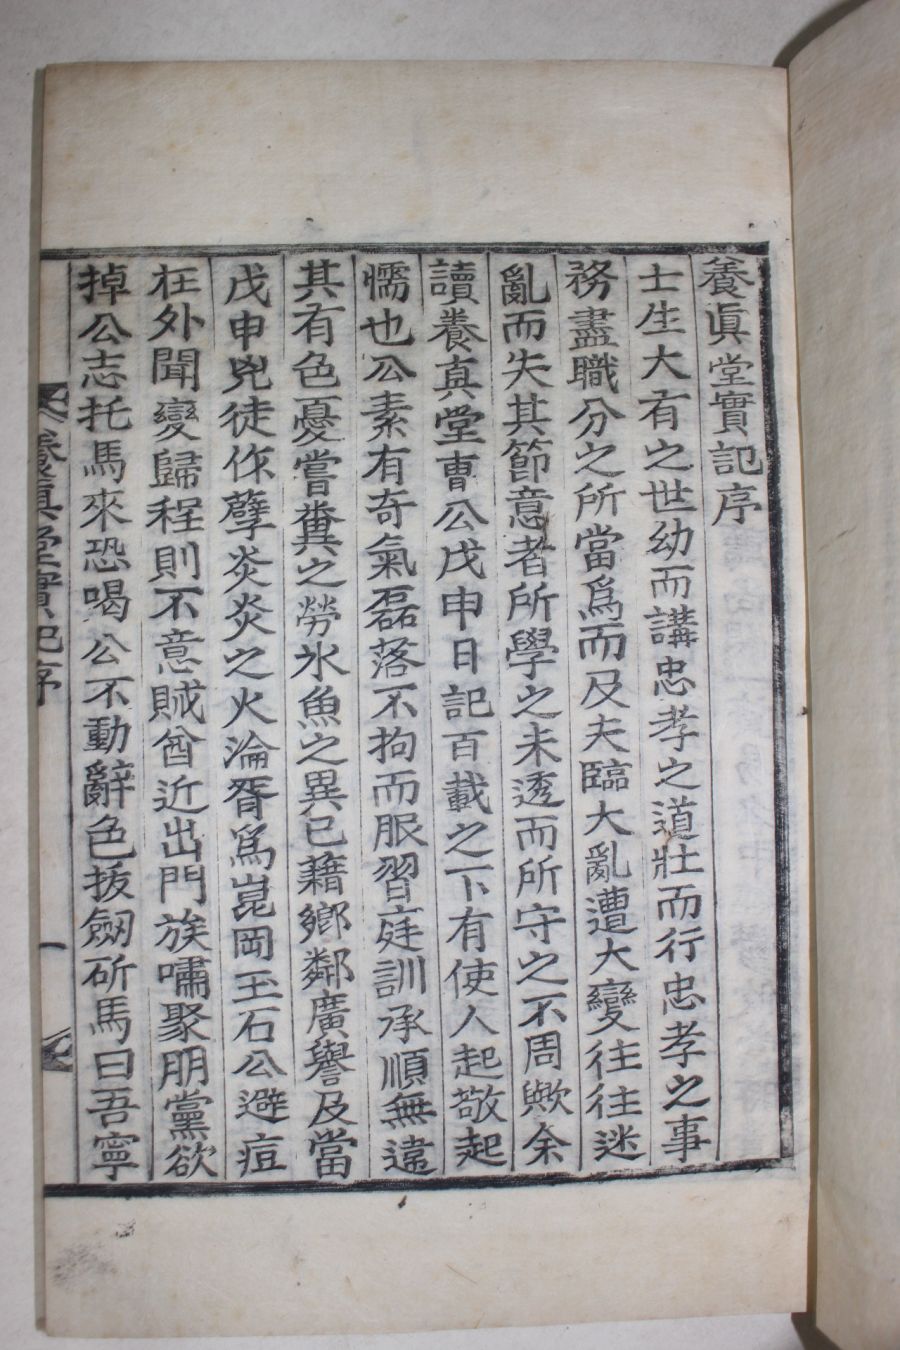 養眞堂實記序
士生大有之世幼而講忠孝之道壯而行忠孝之事
務盡職分之所當爲而及夫臨大亂遭大變往往迷
亂而失其節意者所學之未透而所守之不周歟余
讀養真堂曺公戊申日記百載之下有使人起敬起
懦也公素有奇氣磊落不拘而服習庭訓承順無違
其有色憂嘗糞之勞氷魚之異已藉鄕鄰廣譽及當
戊申兇徒作孽炎炎之火淪胥爲崑岡玉石公避痘
在外聞變歸程則不意賊酋近出門族嘯聚朋黨欲
掉公志托馬來恐喝公不動辭色拔劒斫馬曰吾寧
養眞堂實記序
一